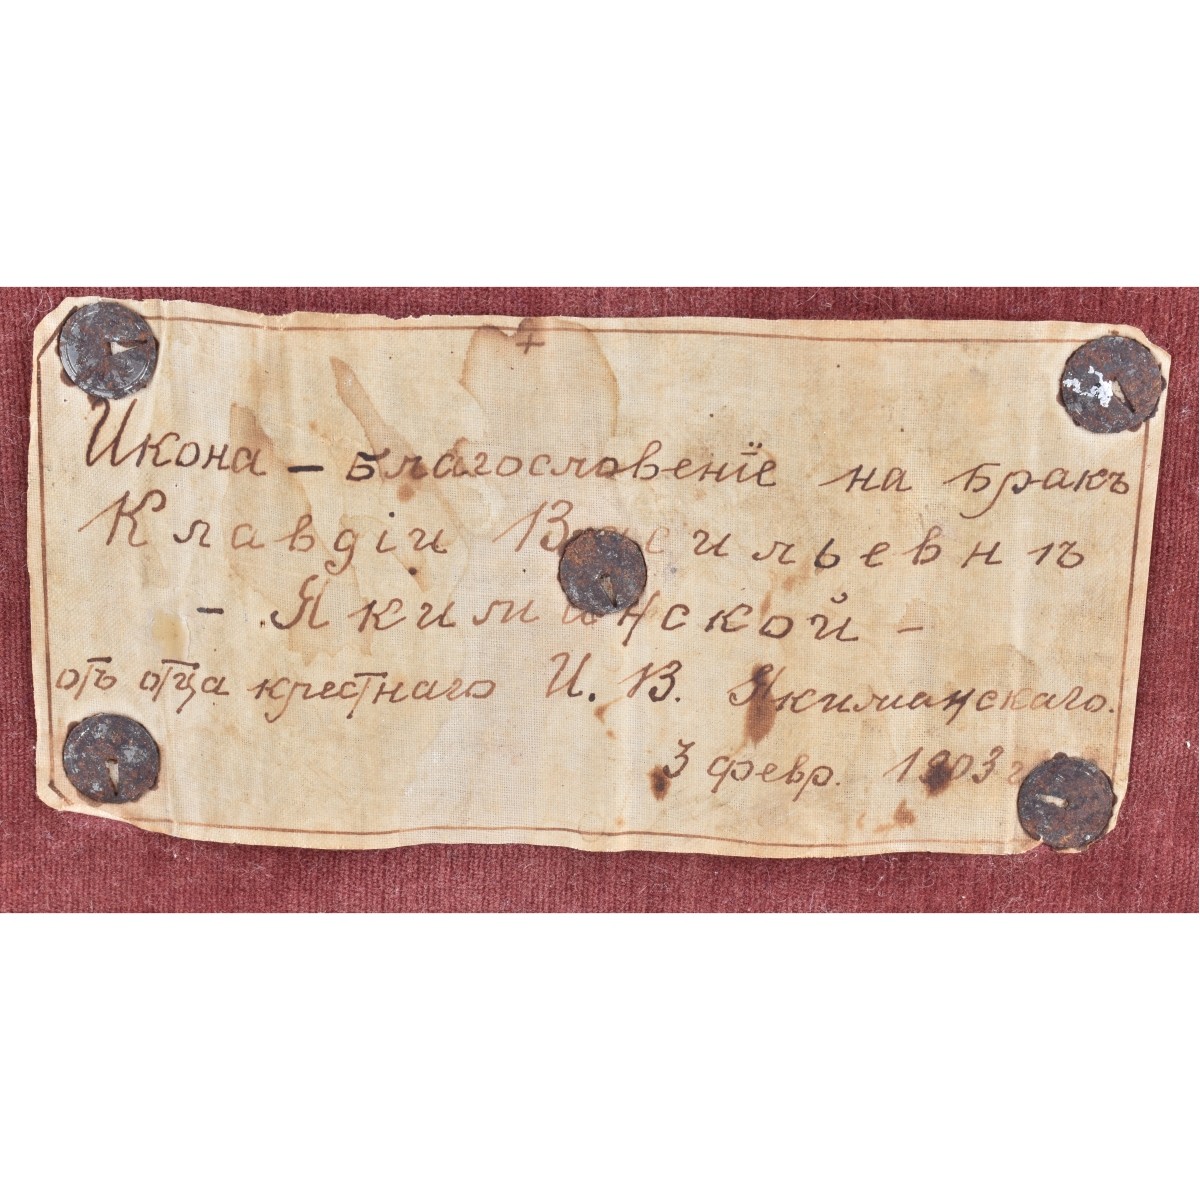 +
Икона – благословеніе на бракъ
Клавдіи Васильевнѣ
– Якиманской –
отъ отца крестнаго И. В. Якиманскаго.
3 февр. 1903 г